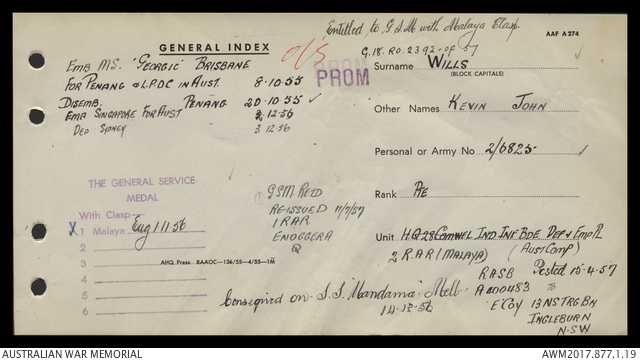 Entitled to G.S.M with Malaya Clasp.
AAF A 274
GENERAL INDEX
O/S
G.18. RO. 2392. of 57
EMB MS. 'GEORGIC' BRISBANE
FOR PENANG & LPDC IN AUST. 8·10·55
PROM
Surname WILLS
(BLOCK CAPITALS)
DISEMB. PENANG 20·10·55
EMB SINGAPORE FOR AUST 2·12·56
DEP SYDNEY 3·12·56
Other Names KEVIN JOHN
Personal or Army No. 2/6825
THE GENERAL SERVICE
MEDAL
With Clasp
X 1 Malaya Eng 1·11·56
2
3
4
5
6
GSM RETD
RE-ISSUED 11/7/57
1 RAR
ENOGGERA
Q
Rank PTE
Unit HQ 28 COMWEL IND INF BDE DEF & EMP PL
2 R.A.R (MALAYA) (AUST COMP)
AHQ Press RAAOC—136/55—4/55—1M
RASB Posted 15·4·57
A 200483 TO
Consigned on S.S. "Mandama" Melb
14·12·56
'E' COY 13 NS TRG BN
INGLEBURN
N·S·W
AUSTRALIAN WAR MEMORIAL
AWM2017.877.1.19